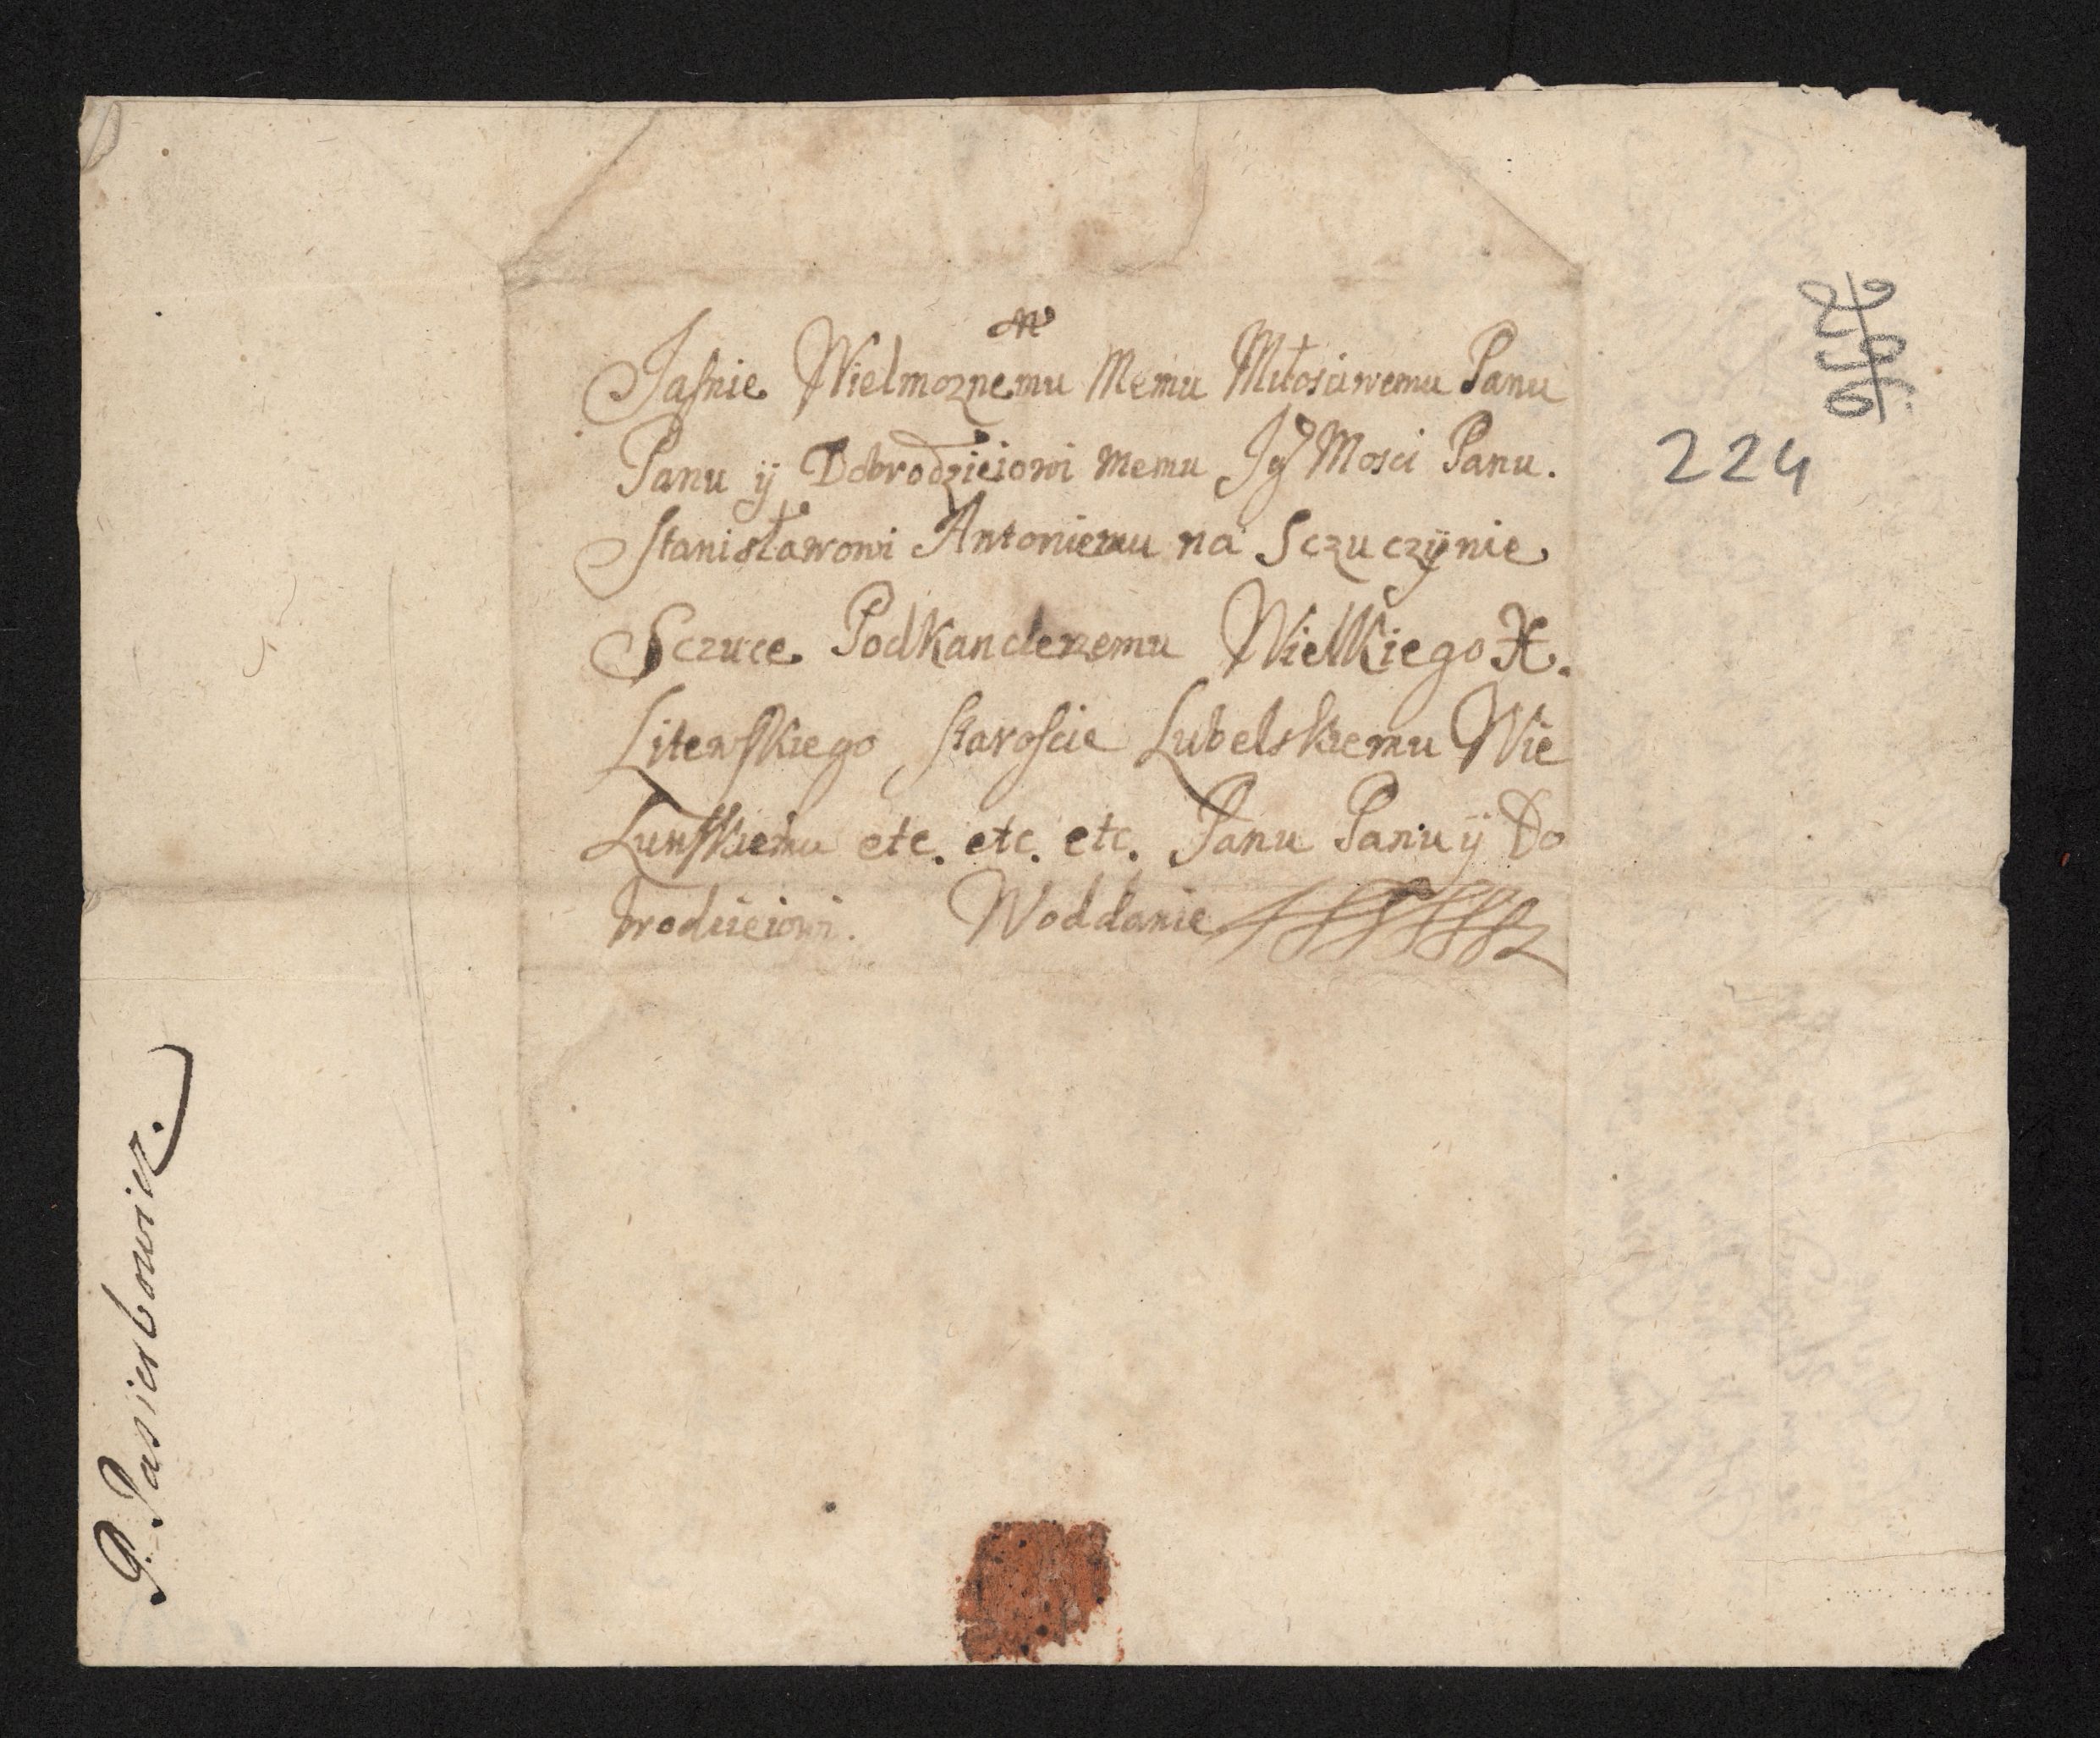 Jaſnie Wielmoznemu Memu Miłosciwemu Panu
Panu ÿ Dobrodzieiowi memu Jg Mosci Panu.
Stanisławowi Antoniemu na Sczuczÿnie
Sczuce Podkanclerzemu Wielkiego X.
Litewſkiego Staroſcie Lubelskiemu Wie
Lunſkiemu etc. etc. etc. Panu Panu ÿ Do
brodzieiowi. Woddanie
224
P. Pasierbowicz.